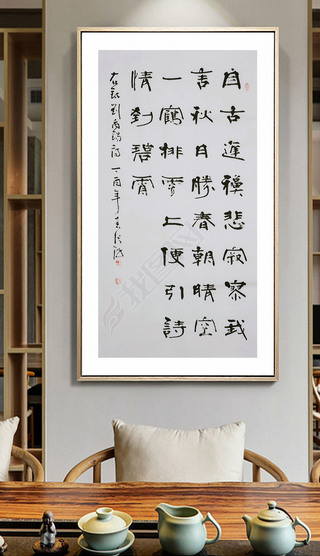 自古逢秋悲寂寥我
言秋日勝春朝晴空
一鶴排雲上便引詩
情到碧霄
右錄劉禹錫詩 丁酉年